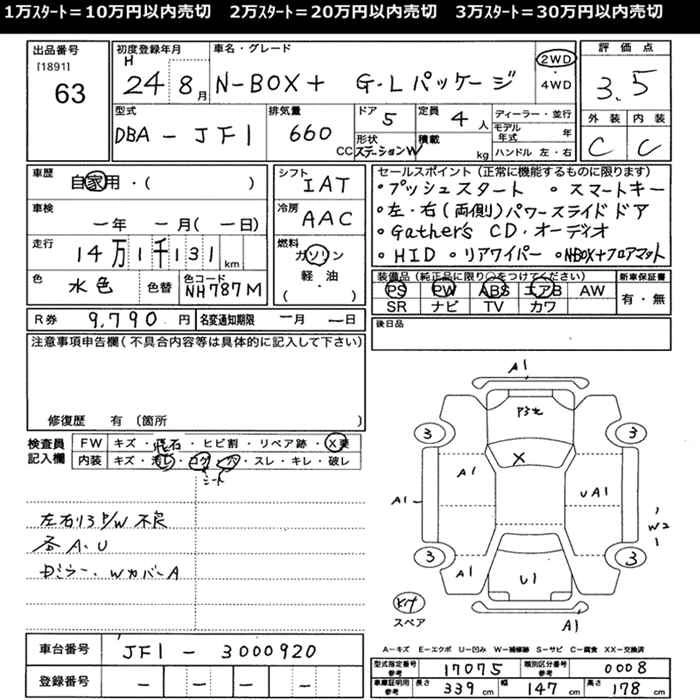 1万ｽﾀｰﾄ＝10万円以内売切　2万ｽﾀｰﾄ＝20万円以内売切　3万ｽﾀｰﾄ＝30万円以内売切
出品番号
[1891]
63
初度登録年月
H
24 8月
車名・グレード
N-BOX+ G・Lパッケージ
2WD
・
4WD
評価点
3.5
外装 内装
C C
型式
DBA - JF1
排気量
660
CC
ドア
5
形状
ステーションW
定員
4人
積載
kg
ディーラー・並行
モデル年式 年
ハンドル 左・右
車歴
自家用・( )
車検
ー年 ー月(ー日)
走行
14万1千131km
色
水色
色替
色コード
NH787M
シフト
IAT
冷房
AAC
燃料
ガソリン
軽・油
( )
セールスポイント（正常に機能するものに限ります）
・プッシュスタート ・スマートキー
・左・右(両側)パワースライドドア
・Gather's CD・オーディオ
・HID ・リアワイパー ・N-BOX+フロアマット
装備品（純正品に限り○をつけてください）
PS PW ABS エアB AW
SR ナビ TV カワ
新車保証書
有・無
R券 9,790円
名変通知期限 ー月 ー日
後日品
注意事項申告欄（不具合内容等は具体的に記入して下さい）
修復歴 有（箇所 ）
検査員
記入欄
FW キズ・飛石・ヒビ割・リペア跡・X要
内装 キズ・汚レ・コゲ・穴・スレ・キレ・破レ
シート
左右リヤP/W不良
各A・U
Dミラー・WカバーA
A1
3 3
A1
X
A1
U A1
W2
3 3
A1
U1
A1
スペア
A－キズ E－エクボ U－凹み W－補修跡 S－サビ C－腐食 XX－交換済
車台番号 JF1 - 3000920
登録番号 ー ー ー ー
型式指定番号
参考
17075
類別区分番号
参考
0008
車庫証明用
参考
長さ 339cm 幅 147cm 高さ 178cm